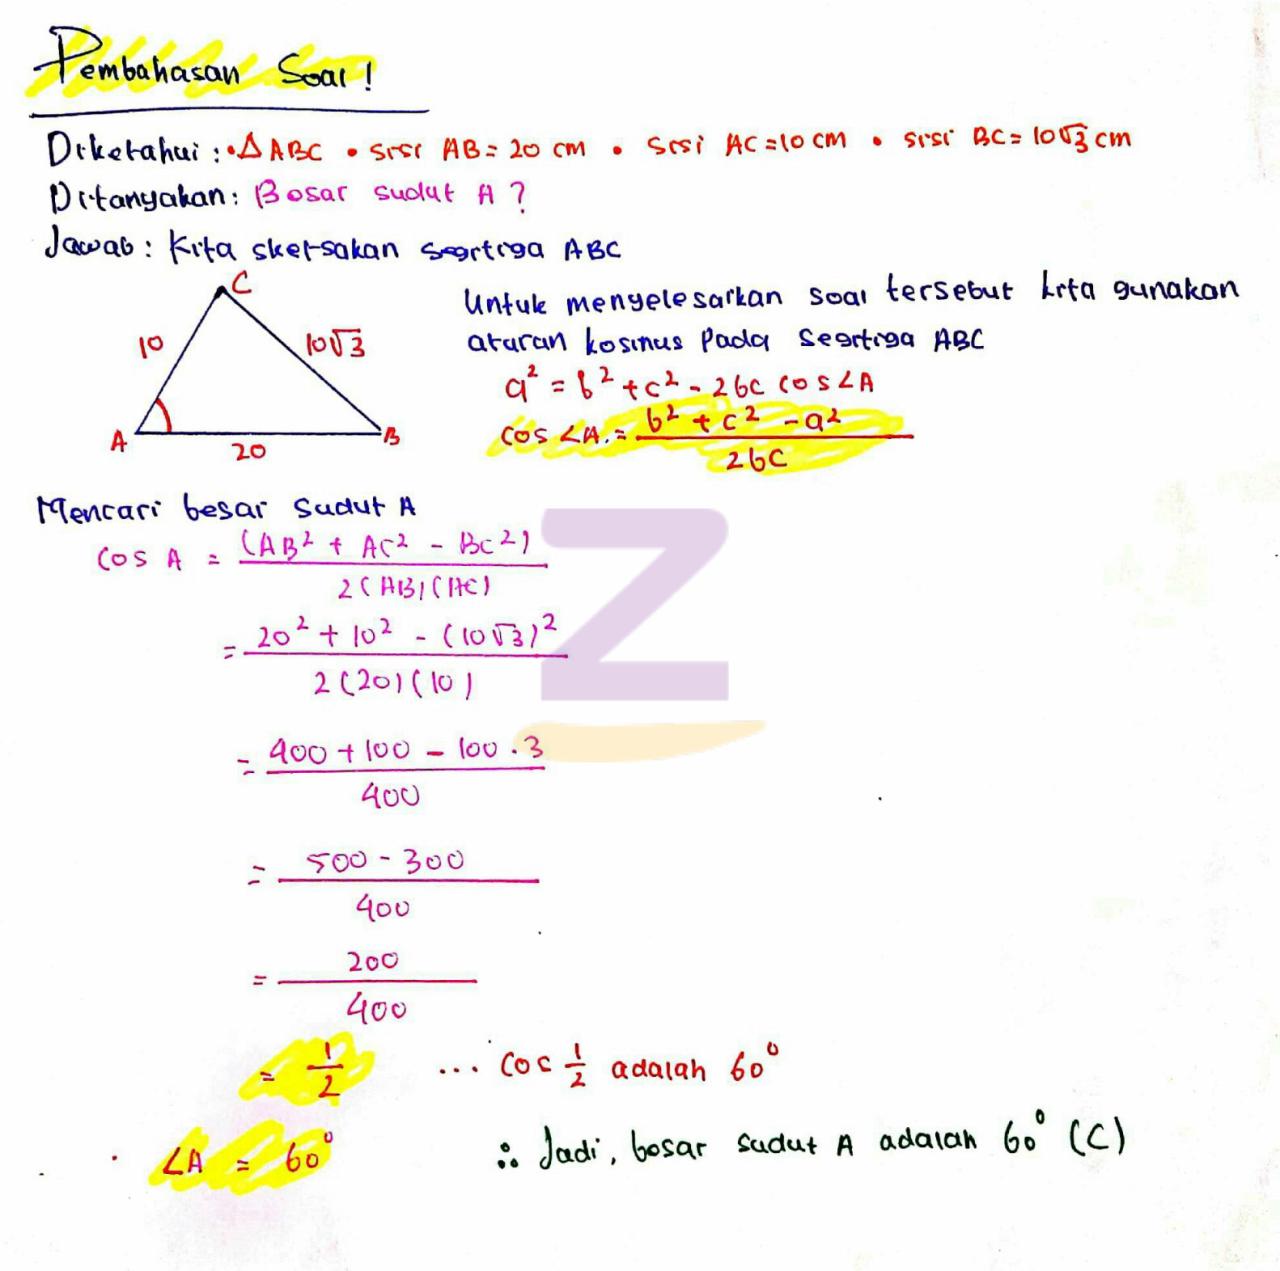 Pembahasan Soal!
Diketahui : • △ ABC • sisi AB = 20 cm • sisi AC = 10 cm • sisi BC = 10√3 cm
Ditanyakan : Besar sudut A ?
Jawab : Kita sketsakan segitiga ABC
C
10
10√3
A
20
B
Untuk menyelesaikan soal tersebut kita gunakan
aturan kosinus Pada Segitiga ABC
a² = b² + c² - 2bc cos∠A
cos ∠A. = b² + c² - a² / 2bc
Mencari besar sudut A
Cos A = (AB² + AC² - BC²) / 2(AB)(AC)
= 20² + 10² - (10√3)² / 2(20)(10)
= 400 + 100 - 100 . 3 / 400
= 500 - 300 / 400
= 200 / 400
= 1/2 ... Cos 1/2 adalah 60°
∠A = 60° ∴ Jadi, besar sudut A adalah 60° (C)
Z